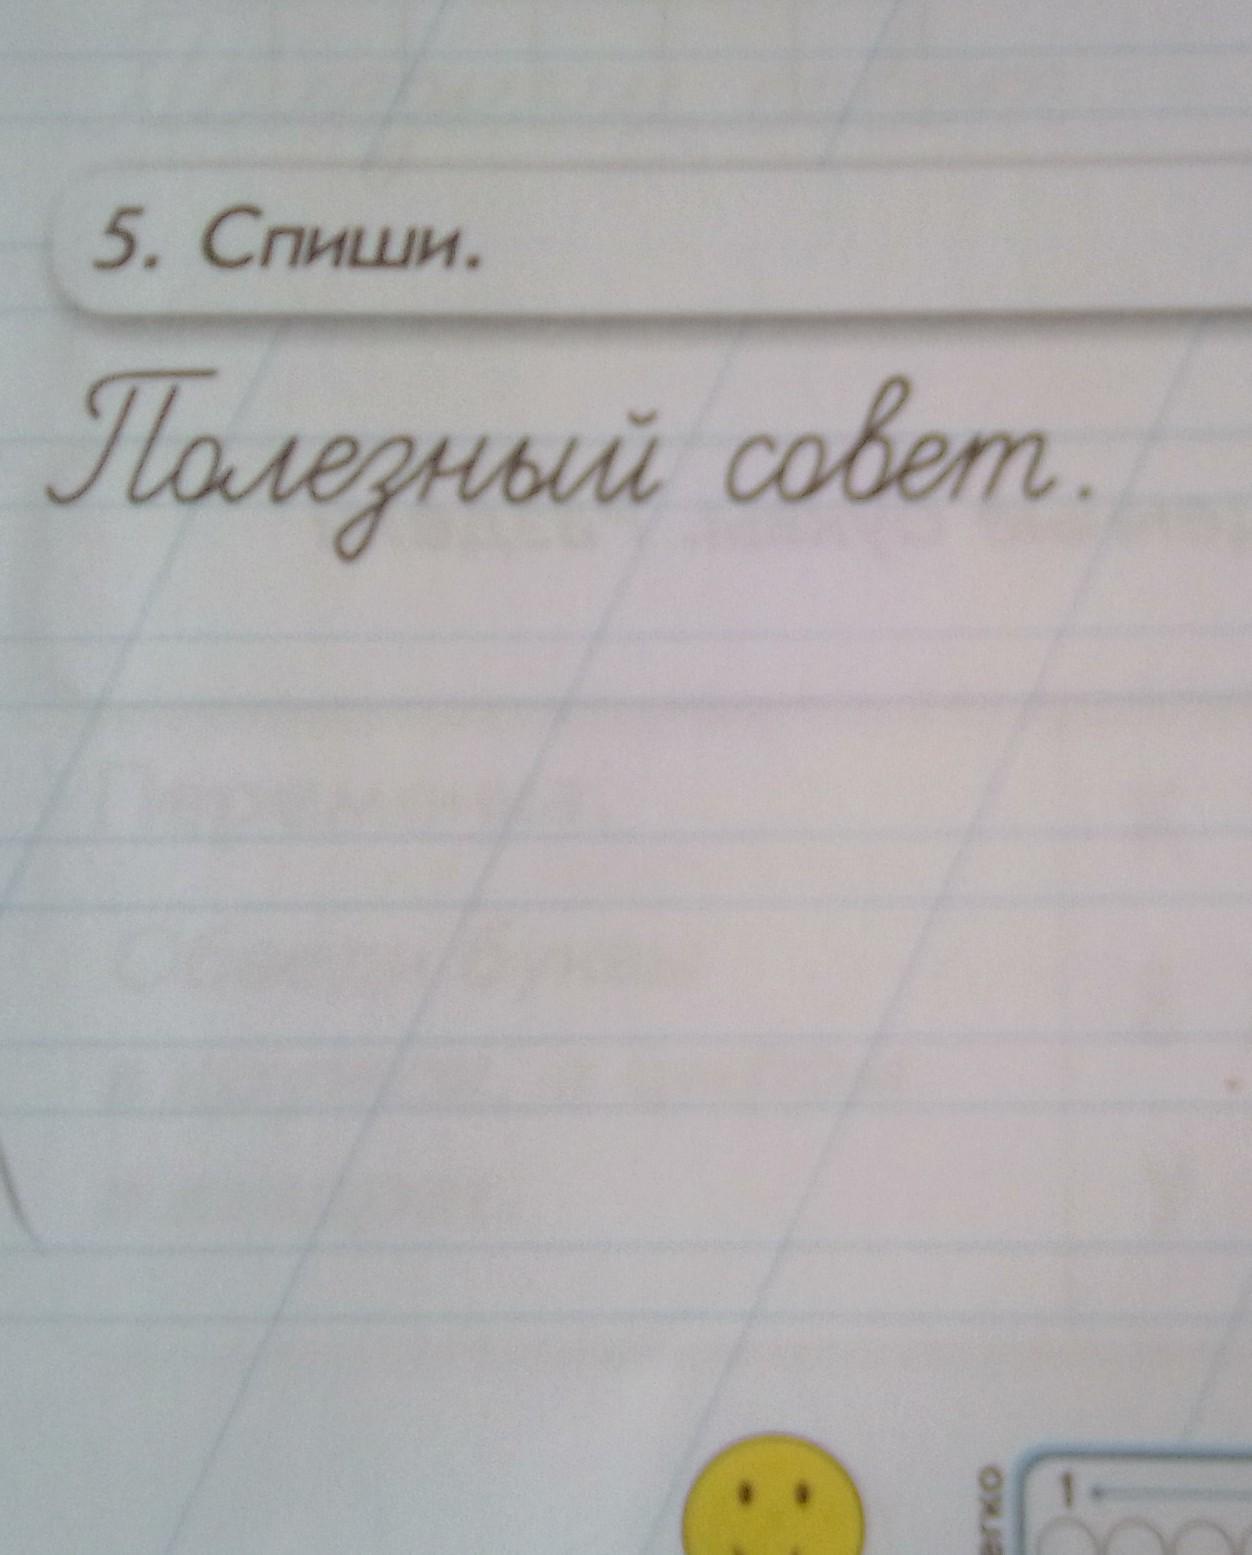 5. Спиши.
Полезный совет.
1